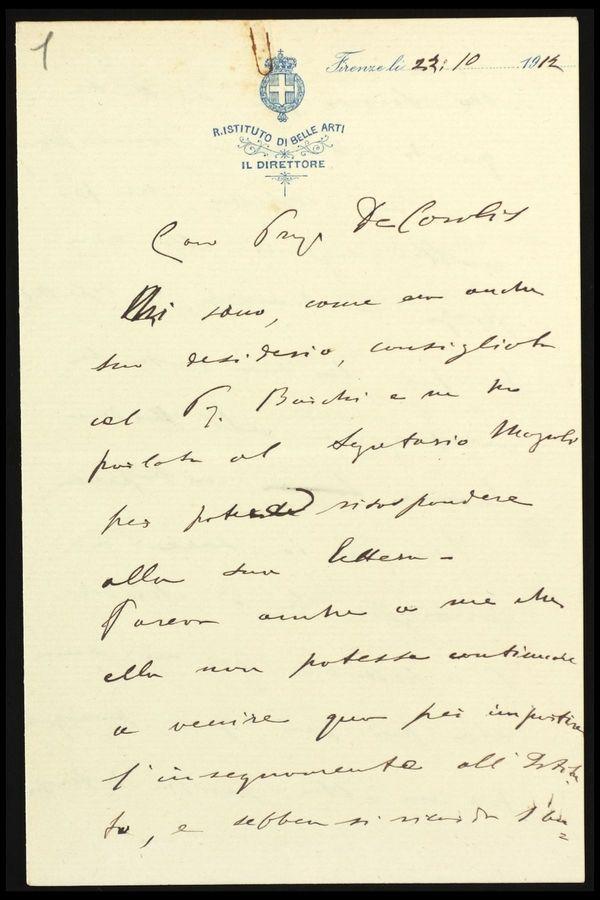 1
Firenze li 22: 10 1912
R. ISTITUTO DI BELLE ARTI
IL DIRETTORE
Caro Prof. De Carolis
Mi sono, come era anche
suo desiderio, consigliato
col P. e ne ho
parlato al Segretario
per poter rispondere
alla sua lettera -
Pareva anche a me che
ella non potesse continuare
a venire qua per impartire
l'insegnamento all'Istitu-
to, e sebben si ricordi l'